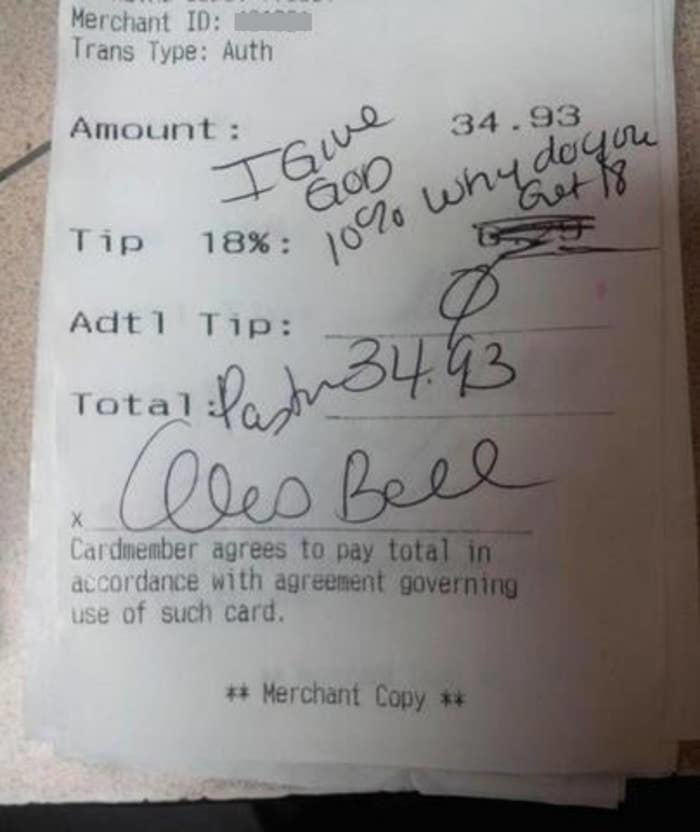 Merchant ID:
Trans Type: Auth
Amount: 34.93
I Give
God
10% why do you
Get 18
Tip 18%:
Adtl Tip: 0
Total: Pastor 34.93
x
Bell
Cardmember agrees to pay total in
accordance with agreement governing
use of such card.
** Merchant Copy **